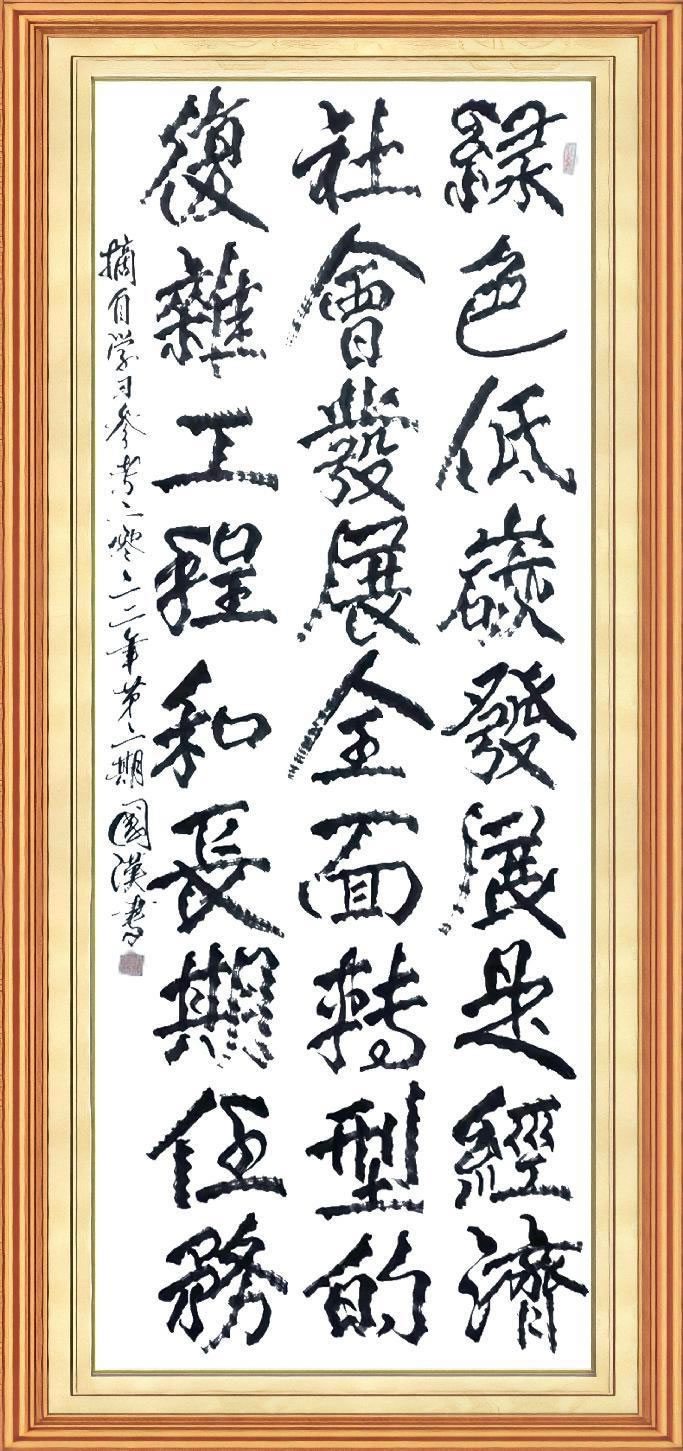 綠色低碳發展是經濟
社會發展全面轉型的
復雜工程和長期任務
摘自学习参考二零二二年第二期 國漢書